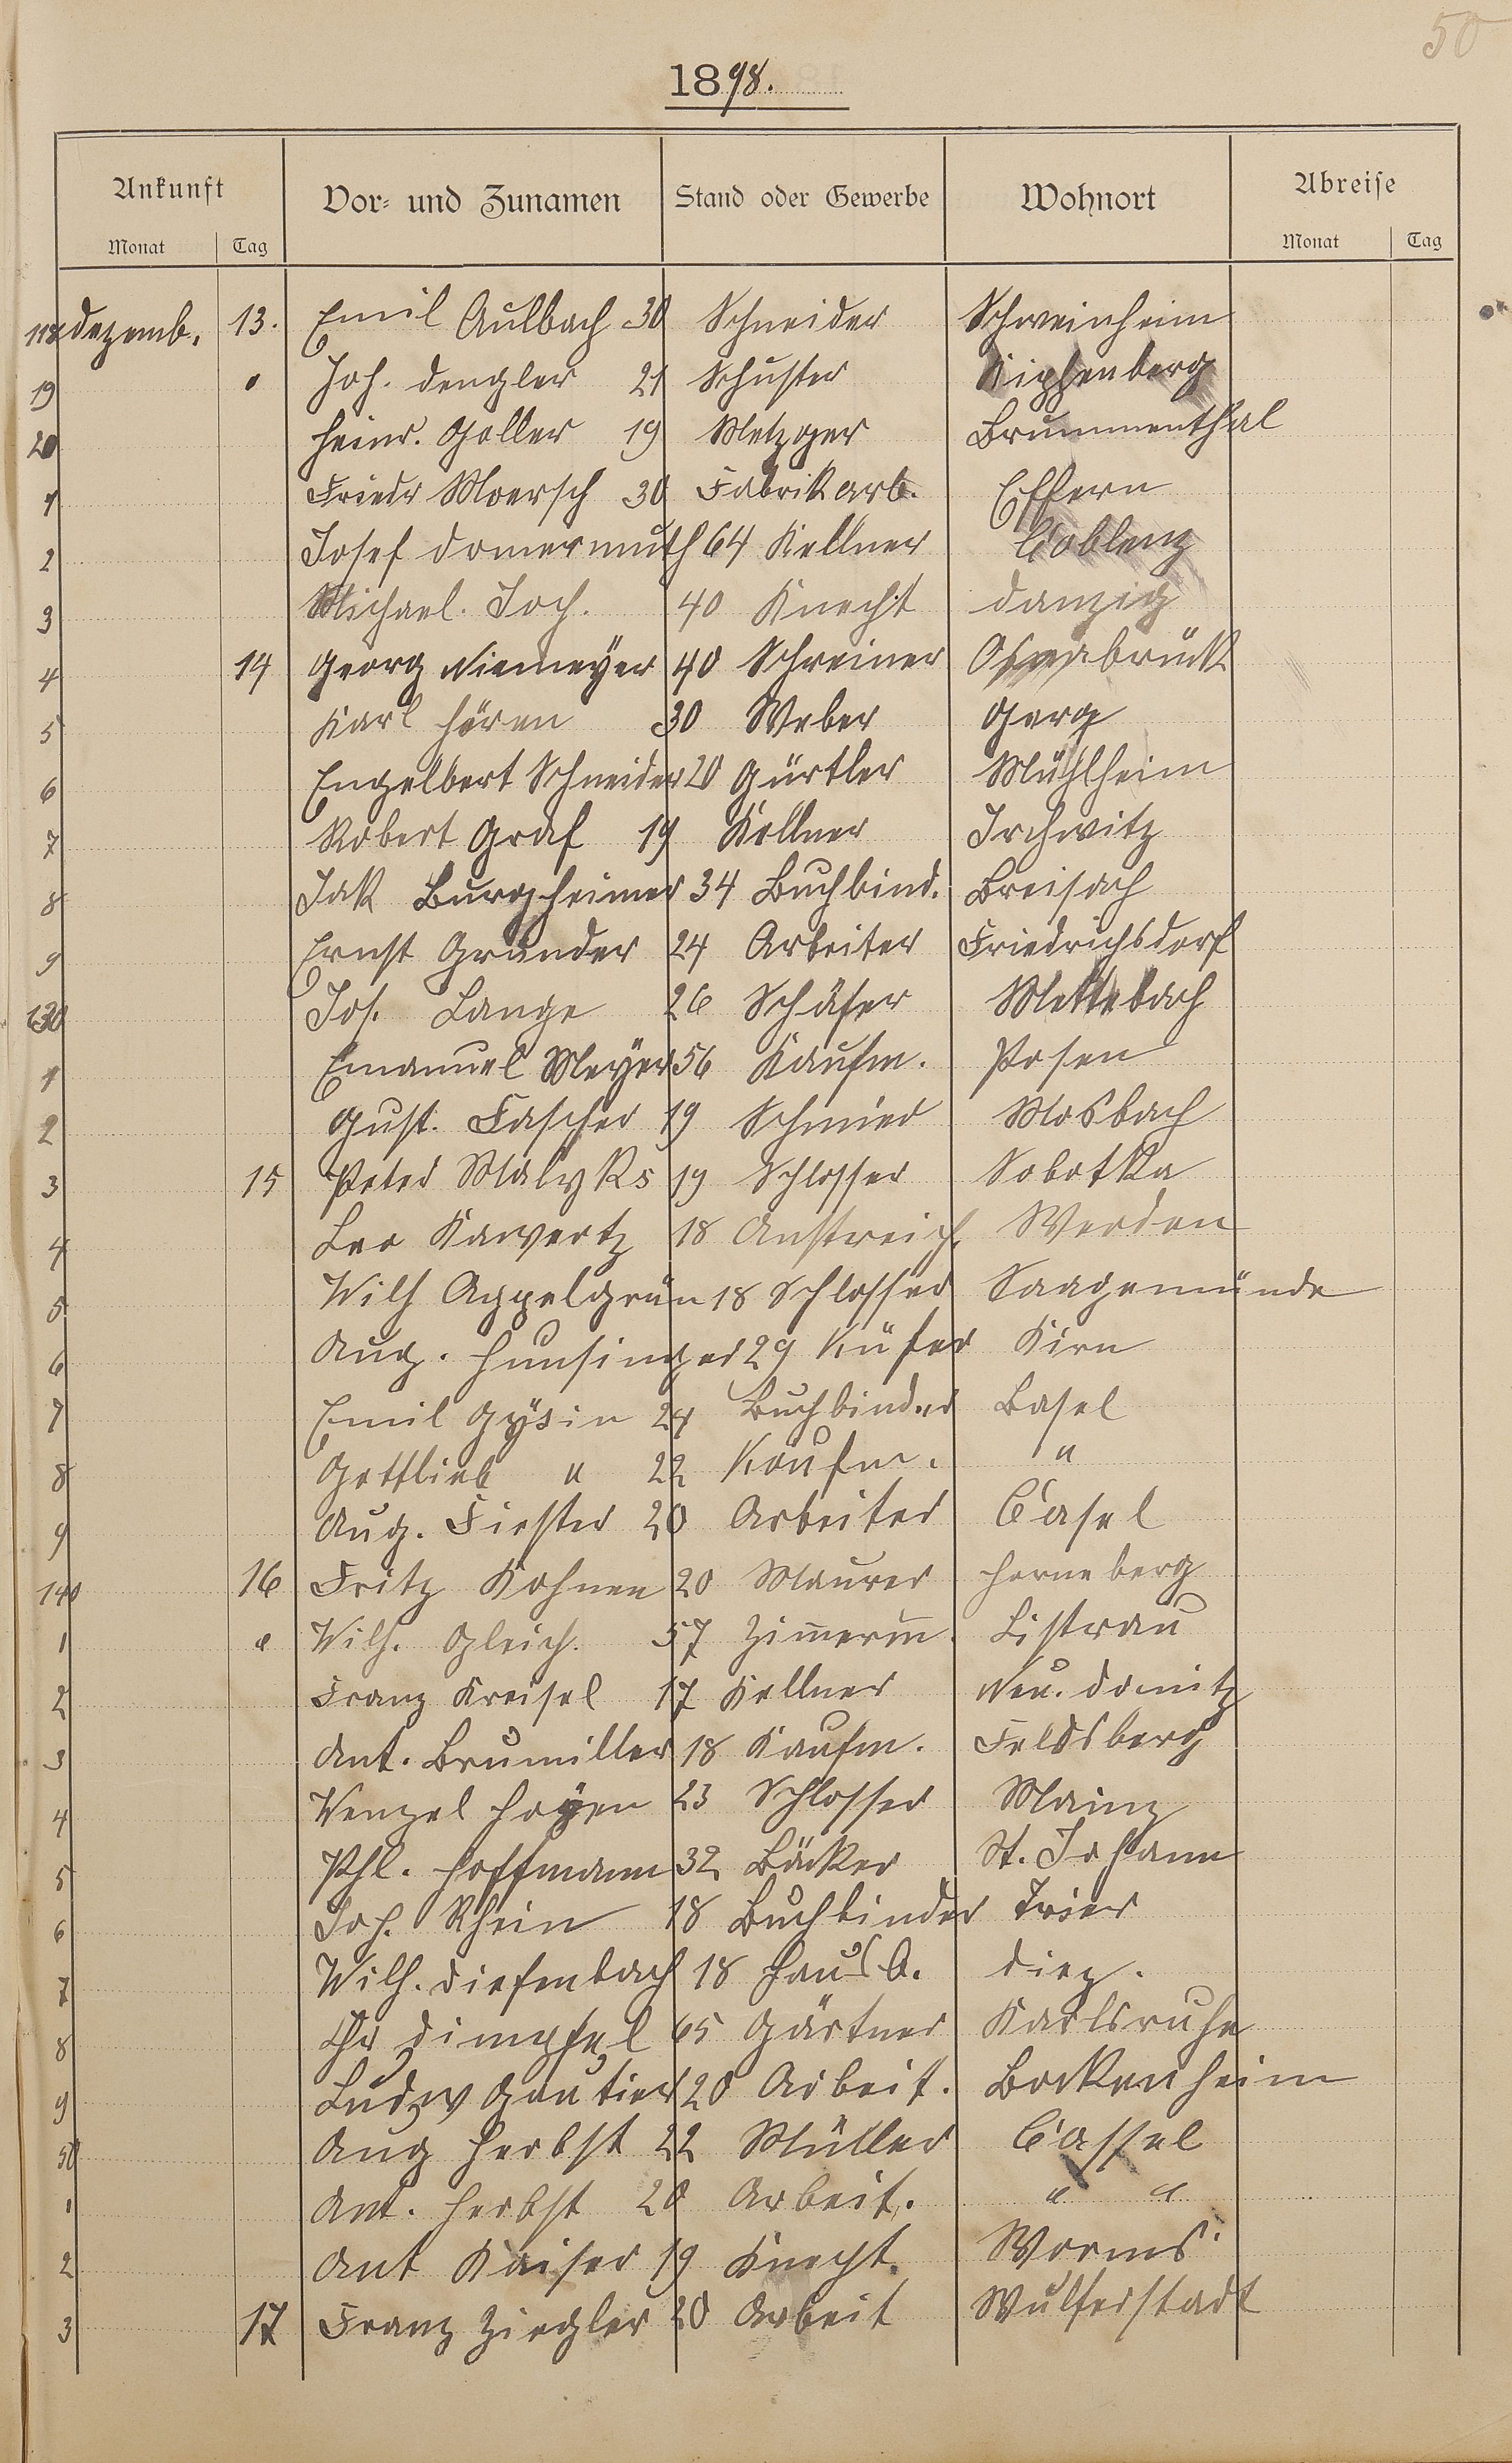 50
1898.
Ankunft Vor- und Zunamen Stand oder Gewerbe Wohnort Abreise
Monat Tag Monat Tag
118 Dezemb. 13. Emil Aulbach 30 Schneider Schweinheim
19 " Joh. Dengler 21 Schuster Kipfenberg
20 Heinr. Goller 19 Metzger Brummenthal
1 Friedr Moersch 30 Fabrikarb. Effern
2 Josef Domermuth 64 Kellner Coblenz
3 Michael Joh. 40 Knecht Danzig
4 14 Georg Niemeyer 40 Schreiner Osnabrück
5 Karl Hören 30 Weber Gerg
6 Engelbert Schneider 20 Gürtler Mühlheim
7 Robert Graf 19 Kellner Irchwitz
8 Jak Burgheimer 34 Buchbind. Breisach
9 Ernst Gründer 24 Arbeiter Friedrichsdorf
130 Jos. Lange 26 Schäfer Mettebach
1 Emanuel Meyer 56 Kaufm. Posen
2 Gust. Fascher 19 Schmied Mosbach
3 15 Peter Malyks 19 Schlosser Sobotka
4 Leo Kawertz 18 Anstreich. Werden
5 Wilh Appelgrün 18 Schlosser Saagemünde
6 Aug. Hunsinger 29 Küfer Kirn
7 Emil Gysin 24 Buchbinder Basel
8 Gottlieb " 22 Kaufm. "
9 Aug. Fiester 20 Arbeiter Casel
140 16 Fritz Kohnen 20 Maurer Horneberg
1 " Wilh. Gleich. 57 Zimerm. Listrau
2 Franz Kreisel 17 Kellner Neu. Domitz
3 Ant. Brumiller 18 Kaufm. Feldsberg
4 Wenzel Hoyen 23 Schlosser Mainz
5 Phl. Hoffmann 32 Bäcker St. Johann
6 Joh. Rhein 18 Buchbinder Trier
7 Wilh. Diefenbach 18 Haus B. Diez.
8 Chr Dimpfel 65 Gärtner Karlsruhe
9 Ludw Gautier 20 Arbeit. Bockenheim
50 Aug Herbst 22 Müller Cassel
1 Ant. Herbst 20 Arbeit. " "
2 Ant Kaiser 19 Knecht. Worms
3 17 Franz Ziegler 20 Arbeit Wulferstadt